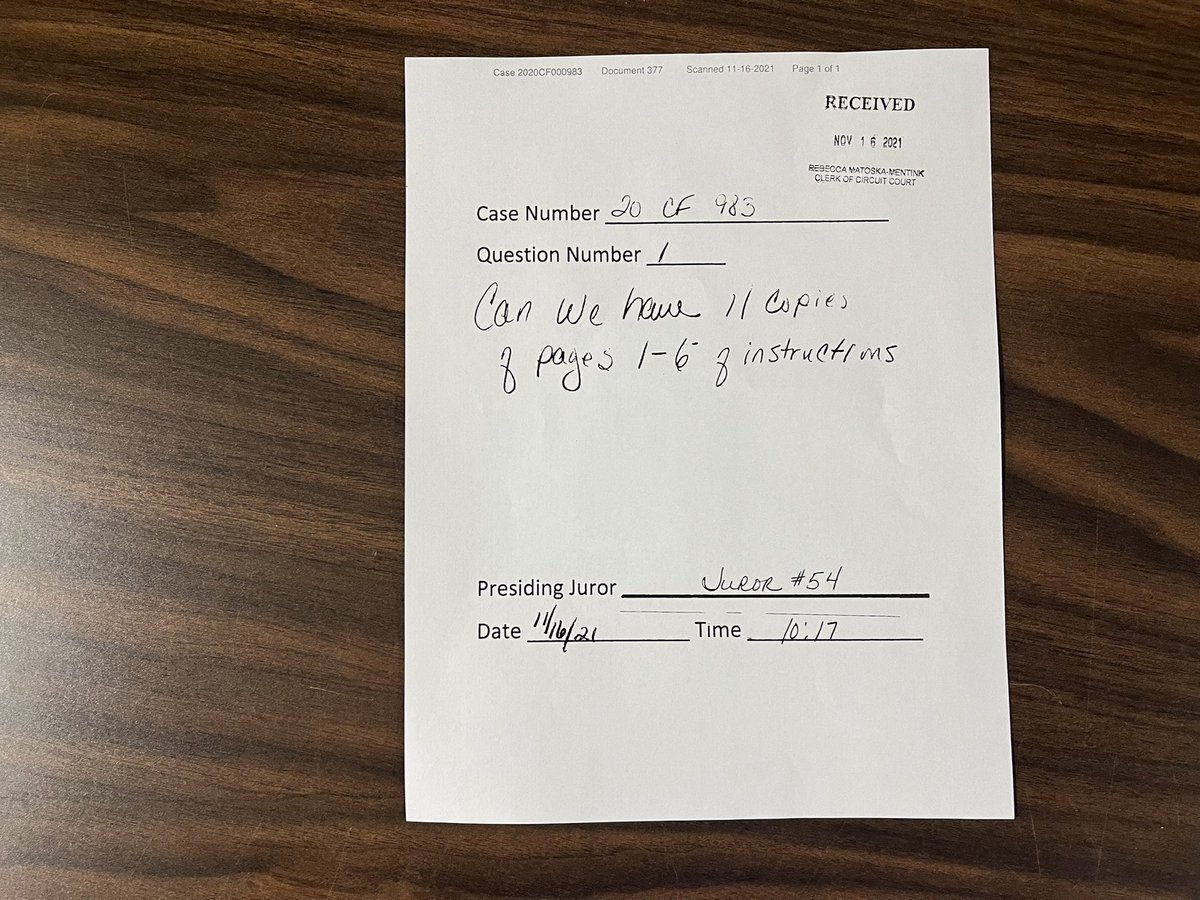 Case 2020CF000983 Document 377 Scanned 11-16-2021 Page 1 of 1
RECEIVED
NOV 16 2021
REBECCA MATOSKA-MENTINK
CLERK OF CIRCUIT COURT
Case Number 20 CF 983
Question Number 1
Can we have 11 copies
of pages 1-6 of instructions
Presiding Juror Juror #54
Date 11/16/21 Time 10:17